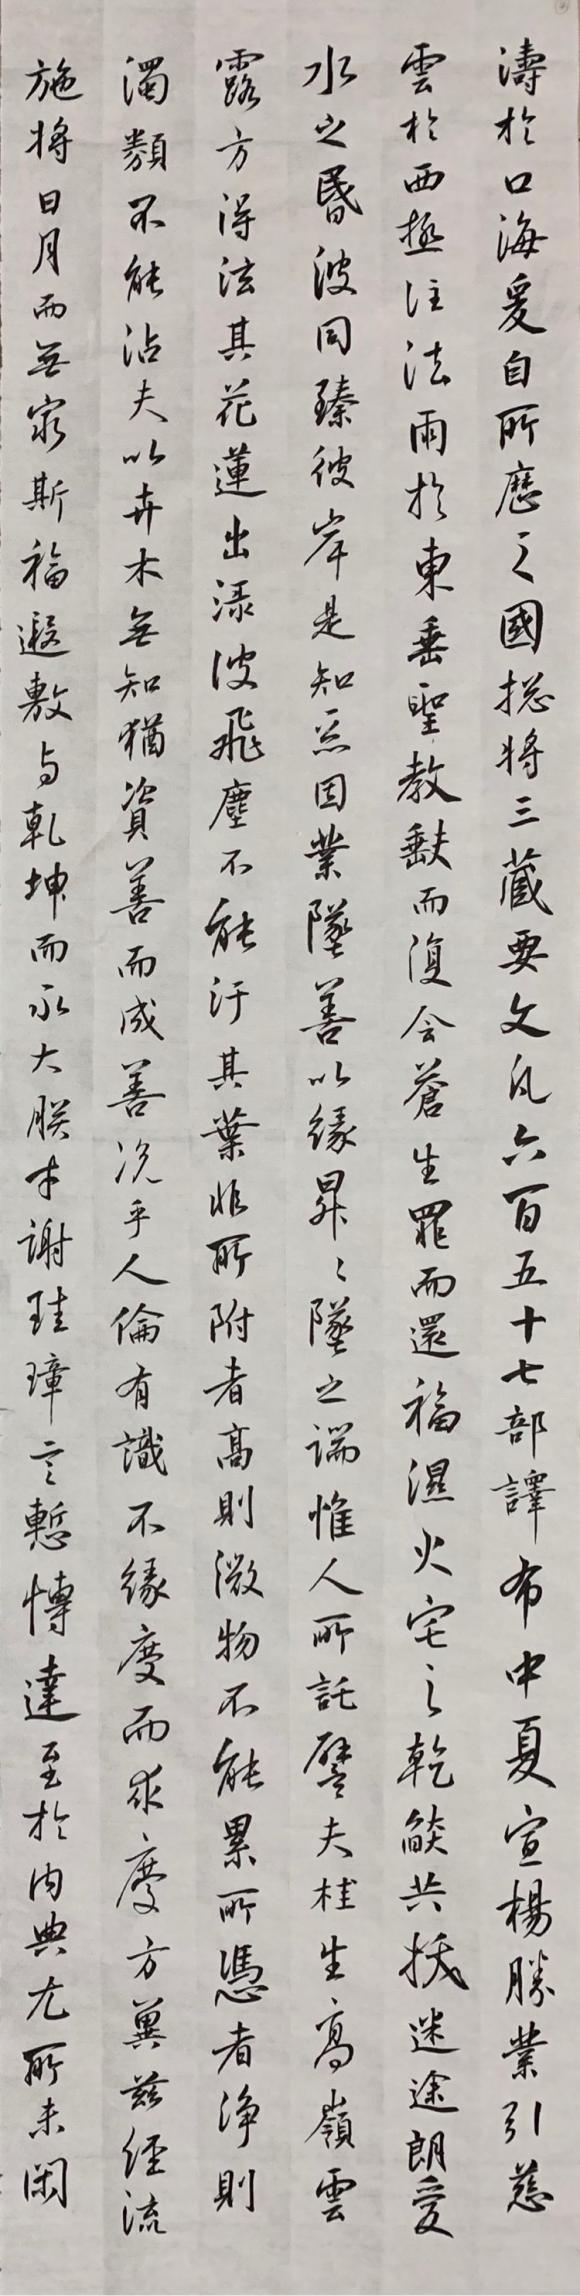 濤於口海爰自所歷之國捴將三藏要文凡六百五十七部譯布中夏宣楊勝業引慈
雲於西極注法雨於東垂聖教缺而復全蒼生罪而還福濕火宅之乾燄共拔迷途朗愛
水之昏波同臻彼岸是知惡因業墜善以緣昇昇墜之端惟人所託譬夫桂生高嶺雲
露方得泫其花蓮出渌波飛塵不能汙其葉非所附者高則微物不能累所憑者淨則
濁類不能沾夫以卉木無知猶資善而成善況乎人倫有識不緣慶而求慶方冀茲經流
施將日月而無窮斯福遐敷与乾坤而永大朕才謝珪璋言慙博達至於內典尤所未閑